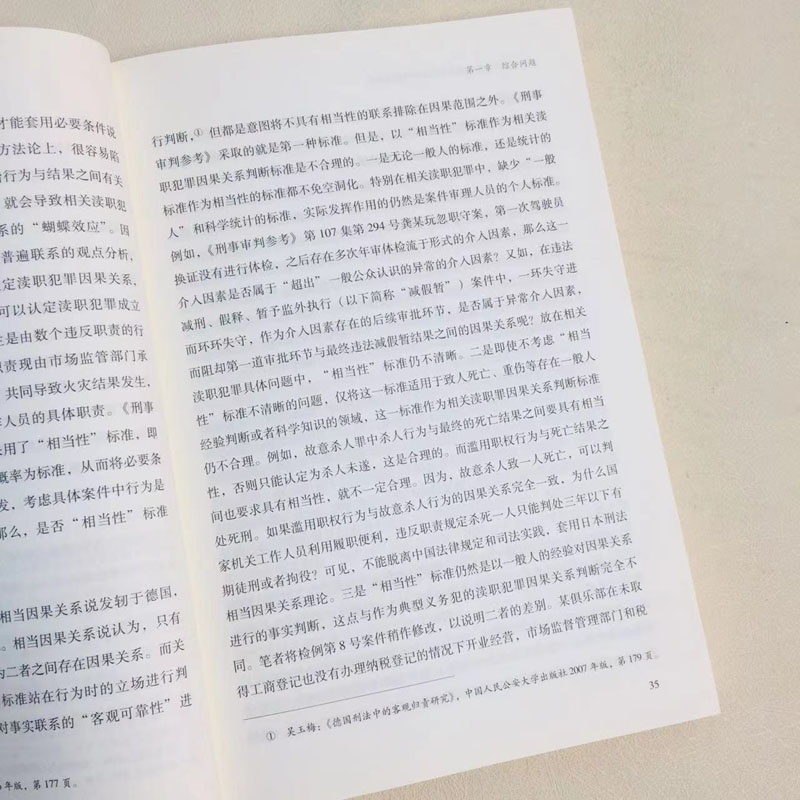 才能套用必要条件说
方法论上，很容易陷
行为与结果之间有关
就会导致相关渎职犯
系的“蝴蝶效应”。因
普遍联系的观点分析，
定渎职犯罪因果关系，
可以认定渎职犯罪成立
生是由数个违反职责的行
职责现由市场监管部门承
共同导致火灾结果发生，
作人员的具体职责。《刑事
采用了“相当性”标准，即
概率为标准，从而将必要条
发，考虑具体案件中行为是
那么，是否“相当性”标准
相当因果关系说发轫于德国，
。相当因果关系说认为，只有
为二者之间存在因果关系。而关
标准站在行为时的立场进行判
对事实联系的“客观可靠性”进
年版，第177页。
第一章 综合问题
行判断，① 但都是意图将不具有相当性的联系排除在因果范围之外。《刑事
审判参考》采取的就是第一种标准。但是，以“相当性”标准作为相关渎
职犯罪因果关系判断标准是不合理的。一是无论一般人的标准，还是统计的
标准作为相当性的标准都不免空洞化。特别在相关渎职犯罪中，缺少“一般
人”和科学统计的标准，实际发挥作用的仍然是案件审理人员的个人标准。
例如，《刑事审判参考》第107集第294号龚某玩忽职守案，第一次驾驶员
换证没有进行体检，之后存在多次年审体检流于形式的介入因素，那么这一
介入因素是否属于“超出”一般公众认识的异常的介入因素？又如，在违法
减刑、假释、暂予监外执行（以下简称“减假暂”）案件中，一环失守进
而环环失守，作为介入因素存在的后续审批环节，是否属于异常介入因素，
而阻却第一道审批环节与最终违法减假暂结果之间的因果关系呢？放在相关
渎职犯罪具体问题中，“相当性”标准仍不清晰。二是即使不考虑“相当
性”标准不清晰的问题，仅将这一标准适用于致人死亡、重伤等存在一般人
经验判断或者科学知识的领域，这一标准作为相关渎职罪因果关系判断标准
仍不合理。例如，故意杀人罪中杀人行为与最终的死亡结果之间要具有相当
性，否则只能认定为杀人未遂，这是合理的。而滥用职权行为与死亡结果之
间也要求具有相当性，就不一定合理。因为，故意杀人致一人死亡，可以判
处死刑。如果滥用职权行为与故意杀人行为的因果关系完全一致，为什么国
家机关工作人员利用履职便利，违反职责规定杀死一人只能判处三年以下有
期徒刑或者拘役？可见，不能脱离中国法律规定和司法实践，套用日本刑法
相当因果关系理论。三是“相当性”标准仍然是以一般人的经验对因果关系
进行的事实判断，这点与作为典型义务犯的渎职犯罪因果关系判断完全不
同。笔者将检例第8号案件稍作修改，以说明二者的差别。某俱乐部在未取
得工商登记也没有办理纳税登记的情况下开业经营，市场监督管理部门和税
① 吴玉梅：《德国刑法中的客观归责研究》，中国人民公安大学出版社2007年版，第179页。
35